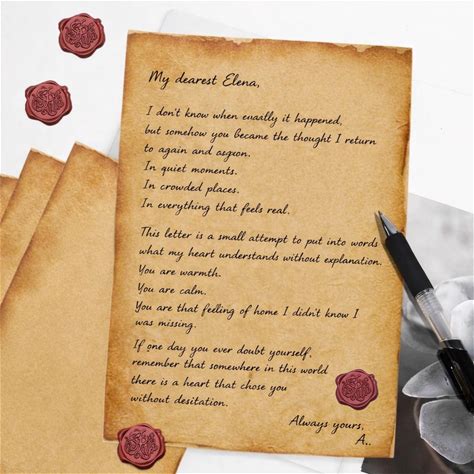 My dearest Elena,
I don't know when euarlly it happened,
but somehow you became the thought I return
to again and aspxon.
In quiet moments.
In crowded places.
In everything that feels real.
This letter is a small attempt to put into words
what my heart understands without explanation.
You are warmth.
You are calm.
You are that feeling of home I didn't know I
was missing.
If one day you ever doubt yourself,
remember that somewhere in this world
there is a heart that chose you
without desitation.
Always yours,
A..